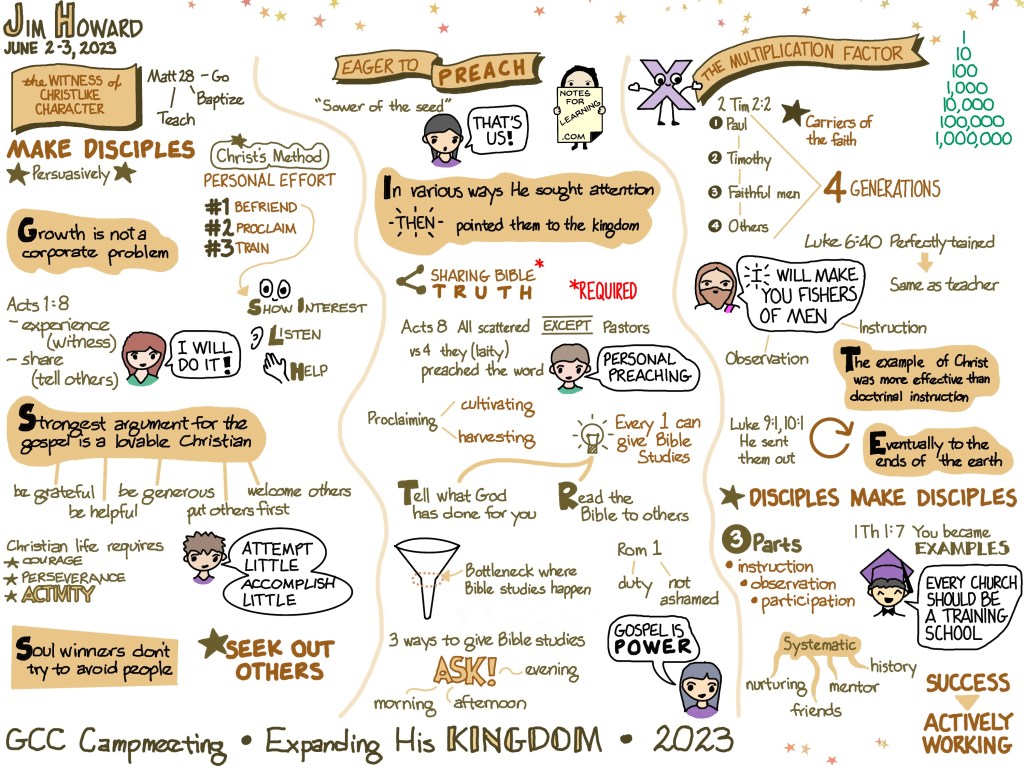 JIM HOWARD
JUNE 2-3, 2023
the WITNESS of
CHRISTLIKE
CHARACTER
Matt 28 - Go
Baptize
Teach
MAKE DISCIPLES
Persuasively
Christ's Method
PERSONAL EFFORT
#1 BEFRIEND
#2 PROCLAIM
#3 TRAIN
Growth is not a
corporate problem
SHOW INTEREST
LISTEN
HELP
Acts 1:8
- experience
(witness)
- share
(tell others)
I WILL
DO IT!
Strongest argument for the
gospel is a lovable Christian
be grateful
be helpful
be generous
put others first
welcome others
Christian life requires
COURAGE
PERSEVERANCE
ACTIVITY
ATTEMPT
LITTLE
ACCOMPLISH
LITTLE
Soul winners dont
try to avoid people
SEEK OUT
OTHERS
EAGER TO PREACH
"Sower of the seed"
THAT'S
US!
NOTES
FOR
LEARNING
.COM
In various ways He sought attention
-THEN- pointed them to the kingdom
SHARING BIBLE*
TRUTH
*REQUIRED
Acts 8 All scattered EXCEPT Pastors
vs 4 they (laity)
preached the word
PERSONAL
PREACHING
Proclaiming
cultivating
harvesting
Every 1 can
give Bible
Studies
Tell what God
has done for you
Read the
Bible to others
Bottleneck where
Bible studies happen
Rom 1
duty
not
ashamed
3 ways to give Bible studies
ASK!
morning
afternoon
evening
GOSPEL IS
POWER
X
THE MULTIPLICATION FACTOR
1
10
100
1,000
10,000
100,000
1,000,000
2 Tim 2:2
1 Paul
2 Timothy
3 Faithful men
4 Others
Carriers of
the faith
4 GENERATIONS
Luke 6:40 Perfectly trained
Same as teacher
I WILL MAKE
YOU FISHERS
OF MEN
Instruction
Observation
The example of Christ
was more effective than
doctrinal instruction
Luke 9:1, 10:1
He sent
them out
Eventually to the
ends of the earth
DISCIPLES MAKE DISCIPLES
3 Parts
• instruction
• observation
• participation
1 Th 1:7 You became
EXAMPLES
EVERY CHURCH
SHOULD BE
A TRAINING
SCHOOL
Systematic
nurturing
friends
mentor
history
SUCCESS
ACTIVELY
WORKING
GCC Campmeeting • Expanding His KINGDOM • 2023